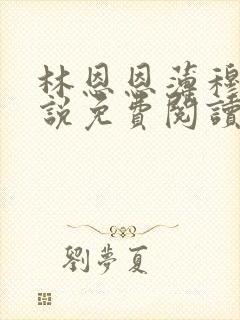 林恩恩薄穆
說免費閱讀
劉夢夏